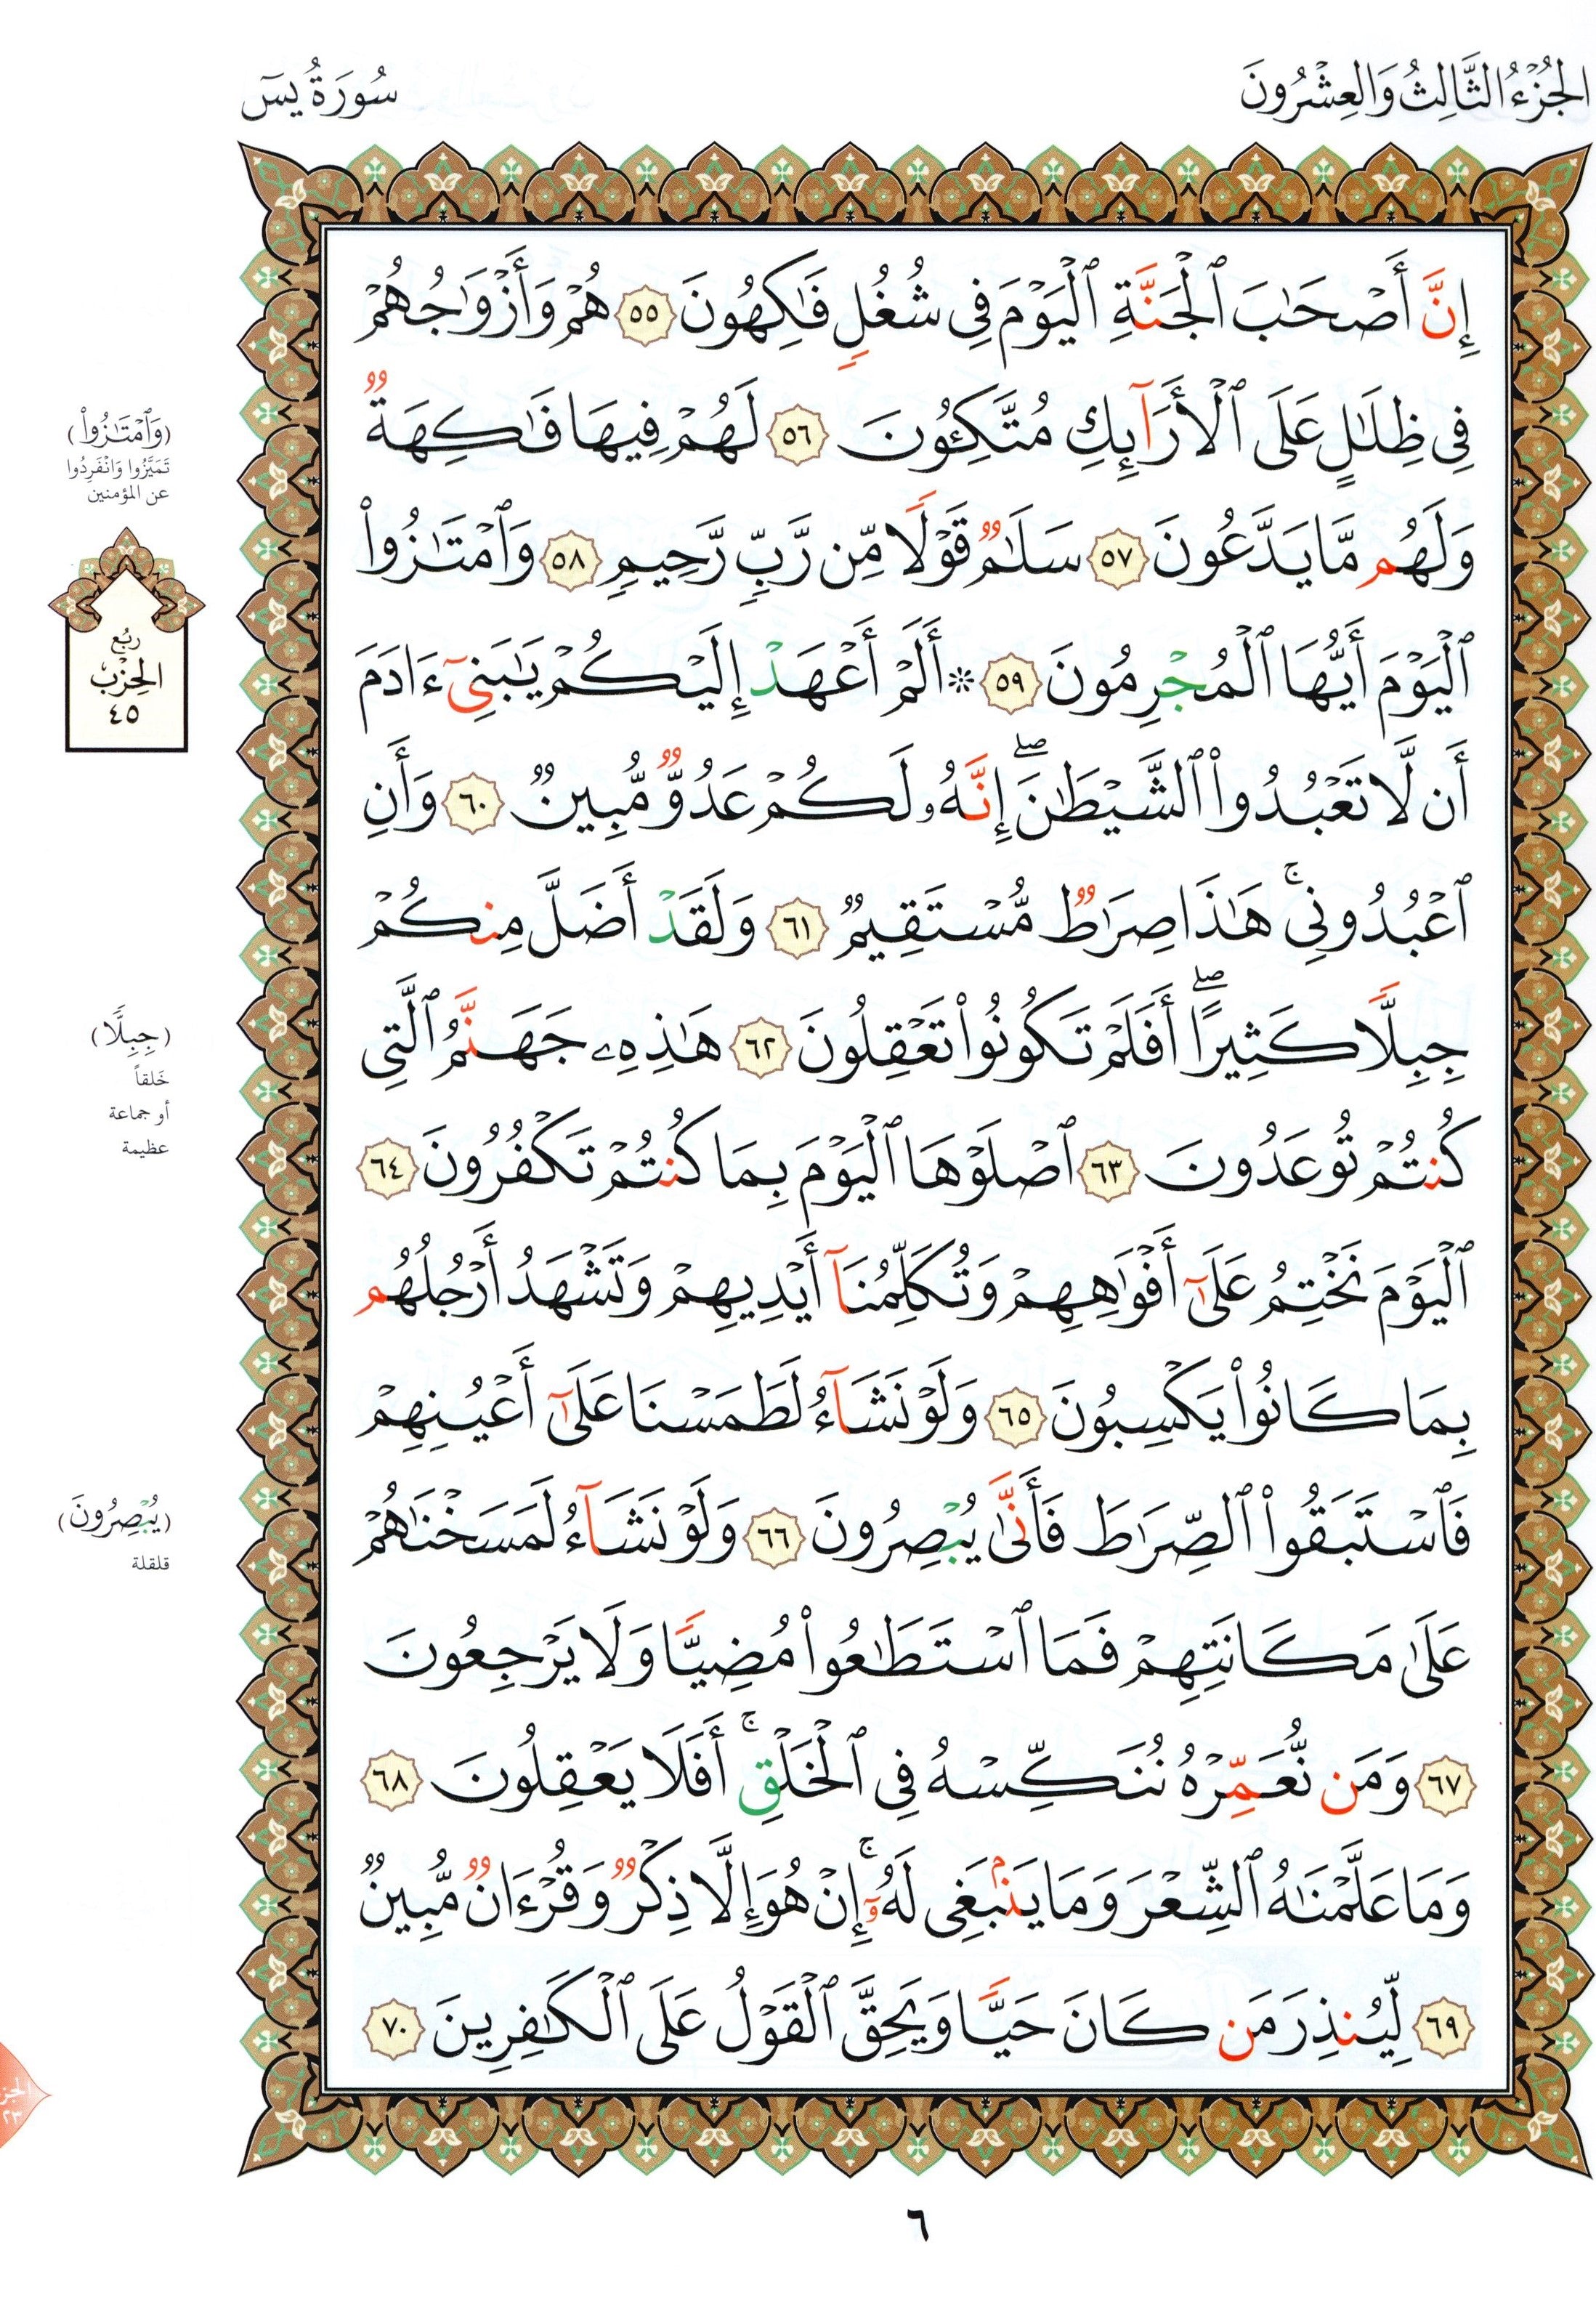 الجُزْءُ الثَّالِثُ وَالعِشْرُونَ
سُورَةُ يسٓ
إِنَّ أَصْحَٰبَ ٱلْجَنَّةِ ٱلْيَوْمَ فِى شُغُلٍ فَٰكِهُونَ ٥٥ هُمْ وَأَزْوَٰجُهُمْ
فِى ظِلَٰلٍ عَلَى ٱلْأَرَآئِكِ مُتَّكِـُٔونَ ٥٦ لَهُمْ فِيهَا فَٰكِهَةٌ
وَلَهُم مَّا يَدَّعُونَ ٥٧ سَلَٰمٌ قَوْلًا مِّن رَّبٍّ رَّحِيمٍ ٥٨ وَٱمْتَٰزُوا۟
ٱلْيَوْمَ أَيُّهَا ٱلْمُجْرِمُونَ ٥٩ ۞ أَلَمْ أَعْهَدْ إِلَيْكُمْ يَٰبَنِىٓ ءَادَمَ
أَن لَّا تَعْبُدُوا۟ ٱلشَّيْطَٰنَ ۖ إِنَّهُۥ لَكُمْ عَدُوٌّ مُّبِينٌ ٦٠ وَأَنِ
ٱعْبُدُونِى ۚ هَٰذَا صِرَٰطٌ مُّسْتَقِيمٌ ٦١ وَلَقَدْ أَضَلَّ مِنكُمْ
جِبِلًّا كَثِيرًا ۖ أَفَلَمْ تَكُونُوا۟ تَعْقِلُونَ ٦٢ هَٰذِهِۦ جَهَنَّمُ ٱلَّتِى
كُنتُمْ تُوعَدُونَ ٦٣ ٱصْلَوْهَا ٱلْيَوْمَ بِمَا كُنتُمْ تَكْفُرُونَ ٦٤
ٱلْيَوْمَ نَخْتِمُ عَلَىٰٓ أَفْوَٰهِهِمْ وَتُكَلِّمُنَآ أَيْدِيهِمْ وَتَشْهَدُ أَرْجُلُهُم
بِمَا كَانُوا۟ يَكْسِبُونَ ٦٥ وَلَوْ نَشَآءُ لَطَمَسْنَا عَلَىٰٓ أَعْيُنِهِمْ
فَٱسْتَبَقُوا۟ ٱلصِّرَٰطَ فَأَنَّىٰ يُبْصِرُونَ ٦٦ وَلَوْ نَشَآءُ لَمَسَخْنَٰهُمْ
عَلَىٰ مَكَانَتِهِمْ فَمَا ٱسْتَطَٰعُوا۟ مُضِيًّا وَلَا يَرْجِعُونَ
٦٧ وَمَن نُّعَمِّرْهُ نُنَكِّسْهُ فِى ٱلْخَلْقِ ۚ أَفَلَا يَعْقِلُونَ ٦٨
وَمَا عَلَّمْنَٰهُ ٱلشِّعْرَ وَمَا يَنۢبَغِى لَهُۥٓ ۚ إِنْ هُوَ إِلَّا ذِكْرٌ وَقُرْءَانٌ مُّبِينٌ
٦٩ لِّيُنذِرَ مَن كَانَ حَيًّا وَيَحِقَّ ٱلْقَوْلُ عَلَى ٱلْكَٰفِرِينَ ٧٠
(وَٱمْتَٰزُوا۟)
تَمَيَّزُوا وَانْفَرِدُوا
عن المؤمنين
ربُع
الحِزْب
٤٥
(جِبِلًّا)
خَلقاً
أو جماعة
عظيمة
(يُبْصِرُونَ)
قلقلة
٢٣
٦